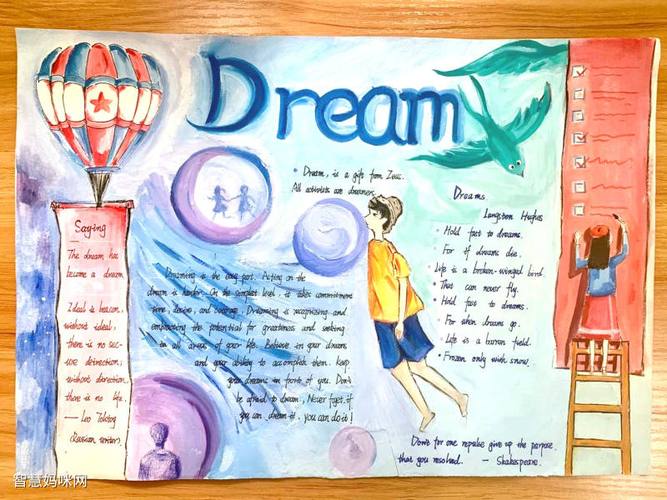 Dream
Saying
The dream has
become a dream
Ideal is beacon,
without ideal,
there is no sec-
ure detrection;
without direction
there is no life.
— Leo Tolstoy
(Russian writer).
Dream, is a gift from Zeus.
All activists are dreamers.
Dreaming is the easy part. Acting on the
dream is harder. On the simplest level, it takes commitment
time, desire, and courage. Dreaming is recognizing and
embracing the potential for greatness and seeking
in all areas of your life. Believe in your dream
and your ability to accomplish them. keep
your dreams in front of you. Don't
be afraid to dream, Never forget, if
you can dream it, you can do it!
Dreams
Langston Hughes
Hold fast to dreams.
For if dreams die.
Life is a broken-winged bird.
That can never fly.
Hold fast to dreams.
For when dreams go.
Life is a barren field.
Frozen only with snow.
Don't for one repulse give up the purpose
that you resolved. — Shakespeare.
智慧妈咪网